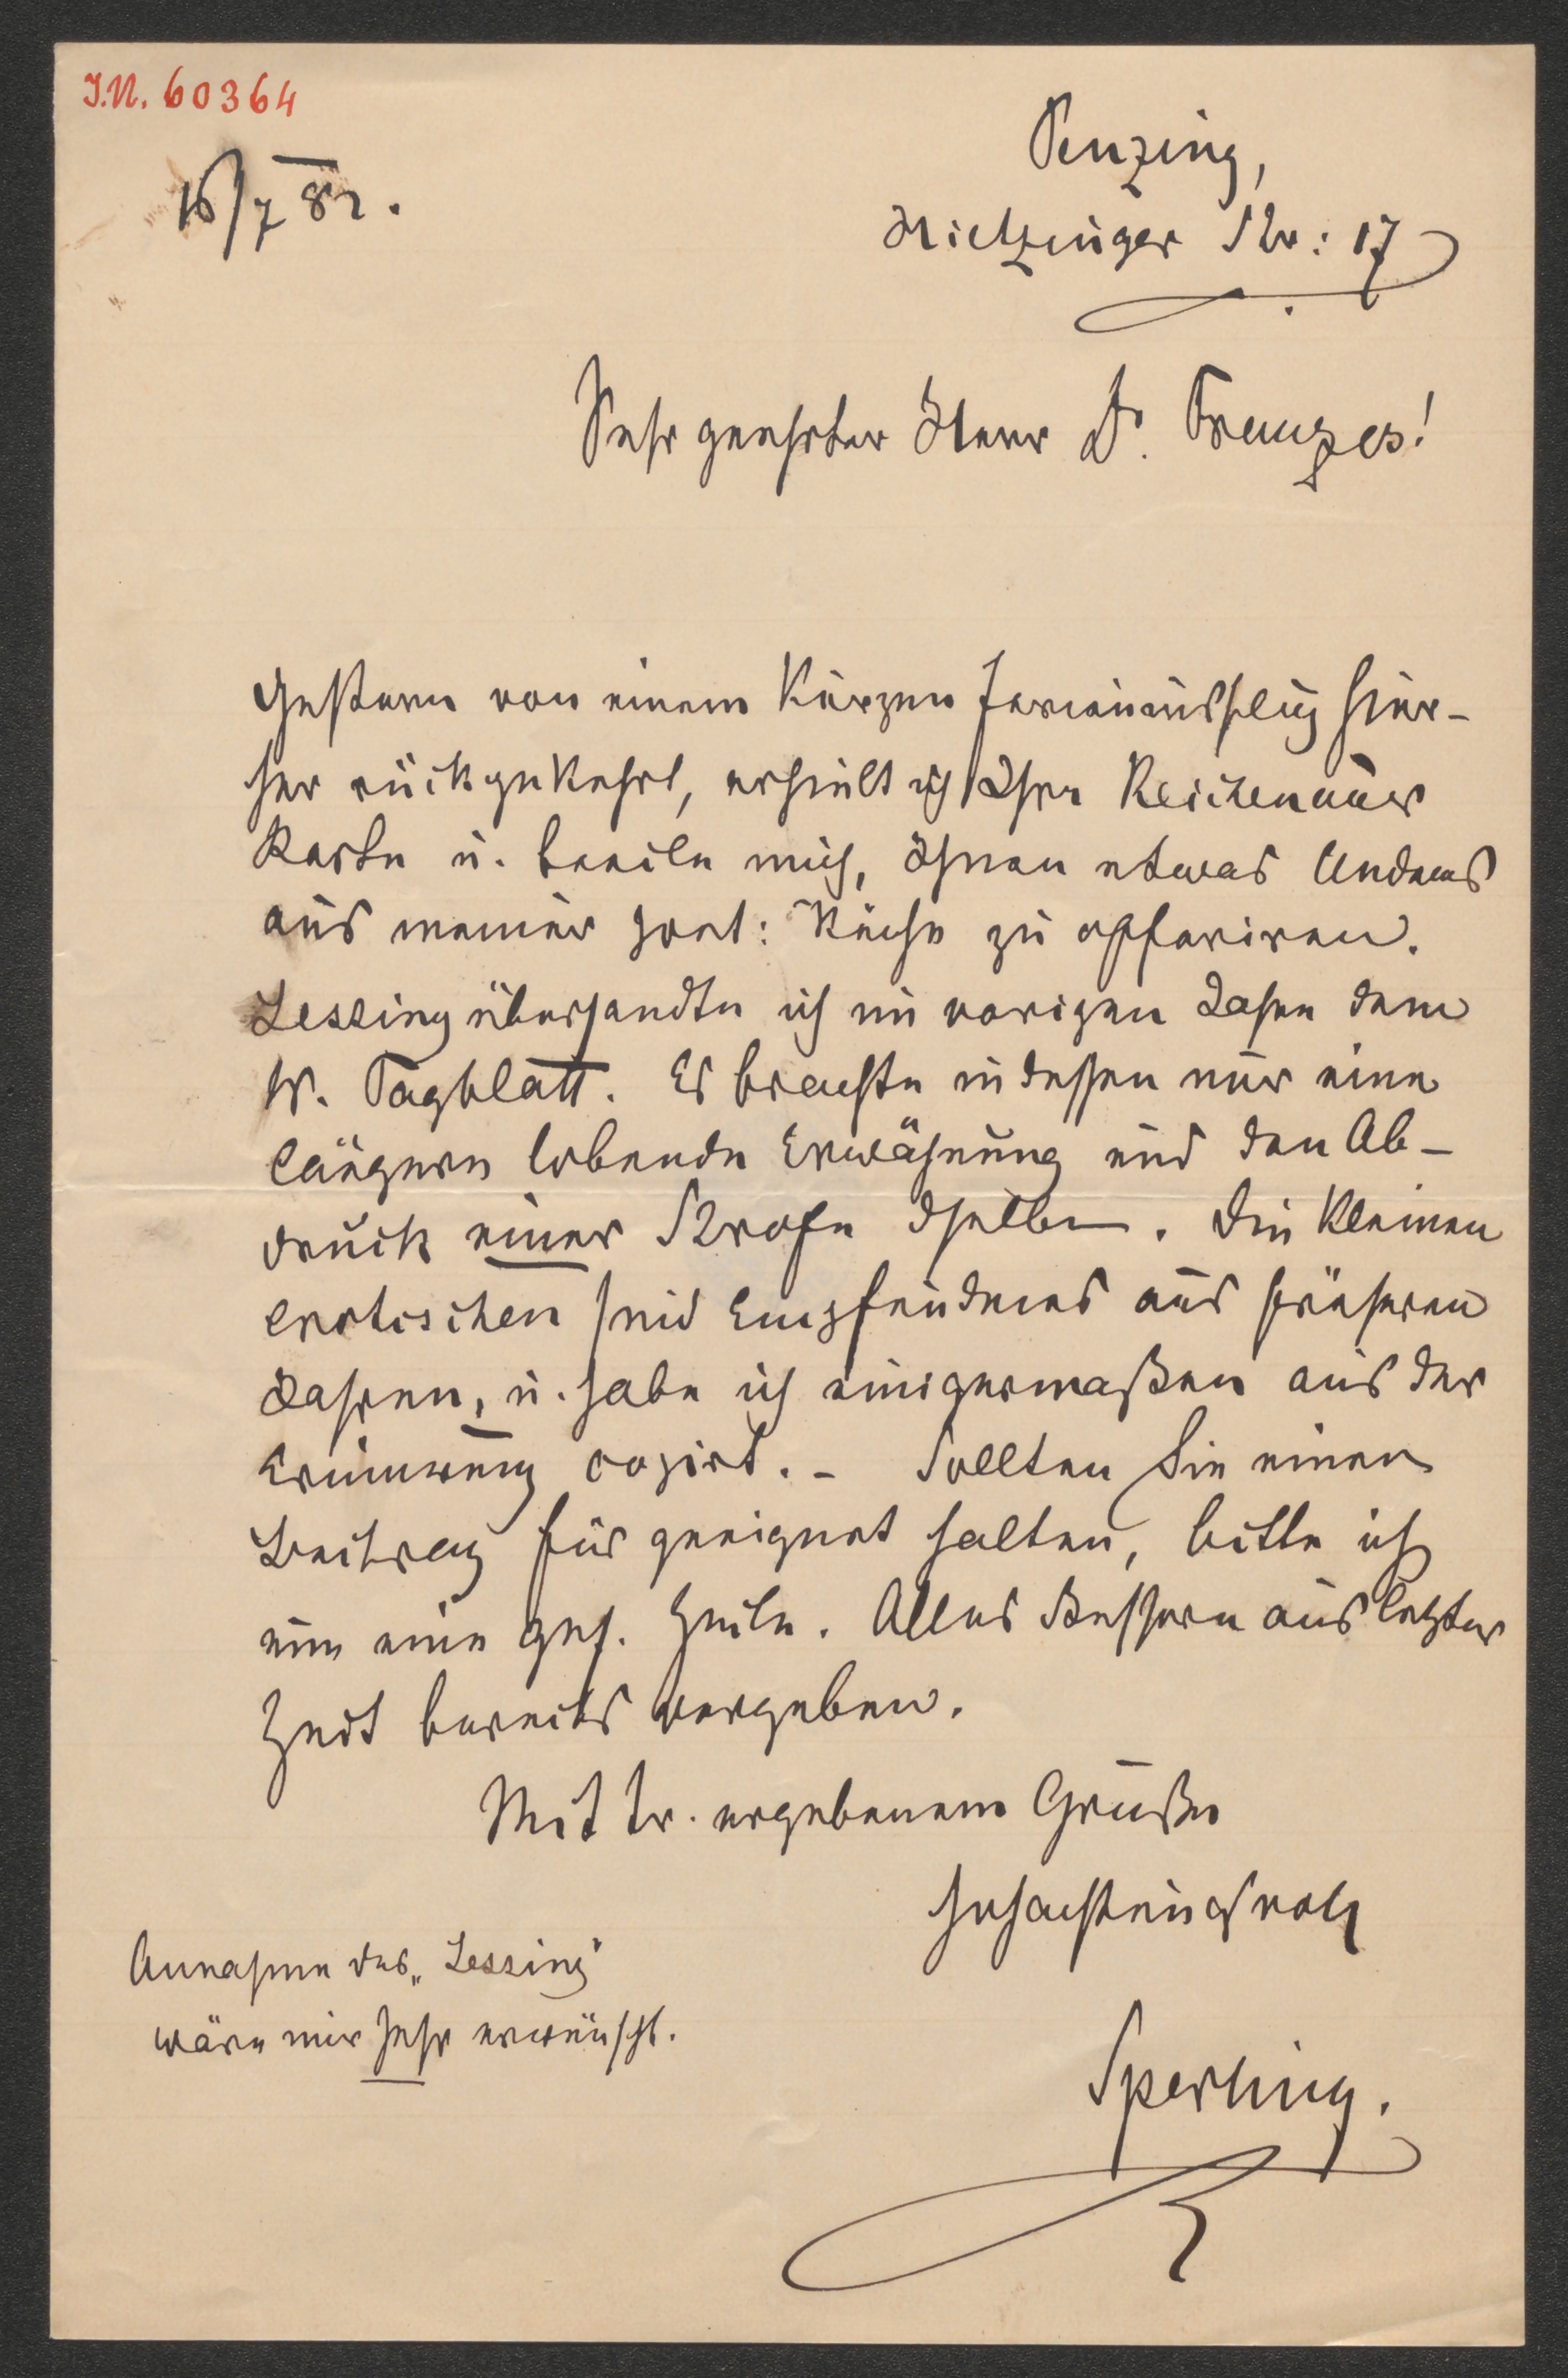 I.N. 60364
16/7 82.
Penzing,
Hietzinger Str: 17
Sehr geehrter Herr Dr. Franzos!
Gestern von einem kurzen Ferienausflug hier-
her rückgekehrt, erhielt ich Ihre Reichenauer
Karte u. beeile mich, Ihnen etwas Anderes
aus meiner poet: Küche zu offeriren.
Lessing übersandte ich im vorigen Jahre dem
W. Tagblatt. Es brachte indessen nur eine
längere lobende Erwähnung und den Ab-
druck einer Strofe dselben. Die kleinen
erotischen sind Empfundenes aus früheren
Jahren, u. habe ich einigermaßen aus der
Erinnerung copirt. - Sollten Sie einen
Beitrag für geeignet halten, bitte ich
um eine gef. Zeile. Alles Bessere aus letzter
Zeit bereits vergeben.
Mit fr. ergebenem Gruße
hochachtungsvoll
Annahme des "Lessing"
wäre mir sehr erwünscht.
Sperling.